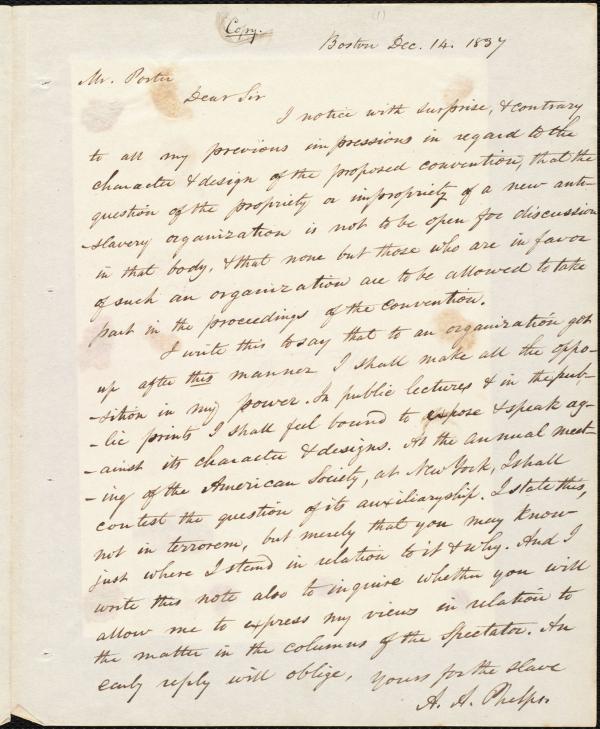 (1)
Copy.
Boston Dec. 14. 1837
Mr. Porter
Dear Sir
I notice with surprise, & contrary
to all my previous impressions in regard to the
character & design of the proposed convention, that the
question of the propriety or impropriety of a new anti-
-slavery organization is not to be open for discussion
in that body, & that none but those who are in favor
of such an organization are to be allowed to take
part in the proceedings of the convention.
I write this to say that to an organization got
up after this manner I shall make all the oppo-
-sition in my power. In public lectures & in the pub-
-lic prints I shall feel bound to expose & speak ag-
-ainst its character & designs. At the annual meet-
-ing of the American Society, at New York, I shall
contest the question of its auxiliaryship. I state this,
not in terrorem, but merely that you may know
just where I stand in relation to it & why. And I
write this note also to inquire whether you will
allow me to express my views in relation to
the matter in the columns of the Spectator. An
early reply will oblige, yours for the slave
A. A. Phelps.